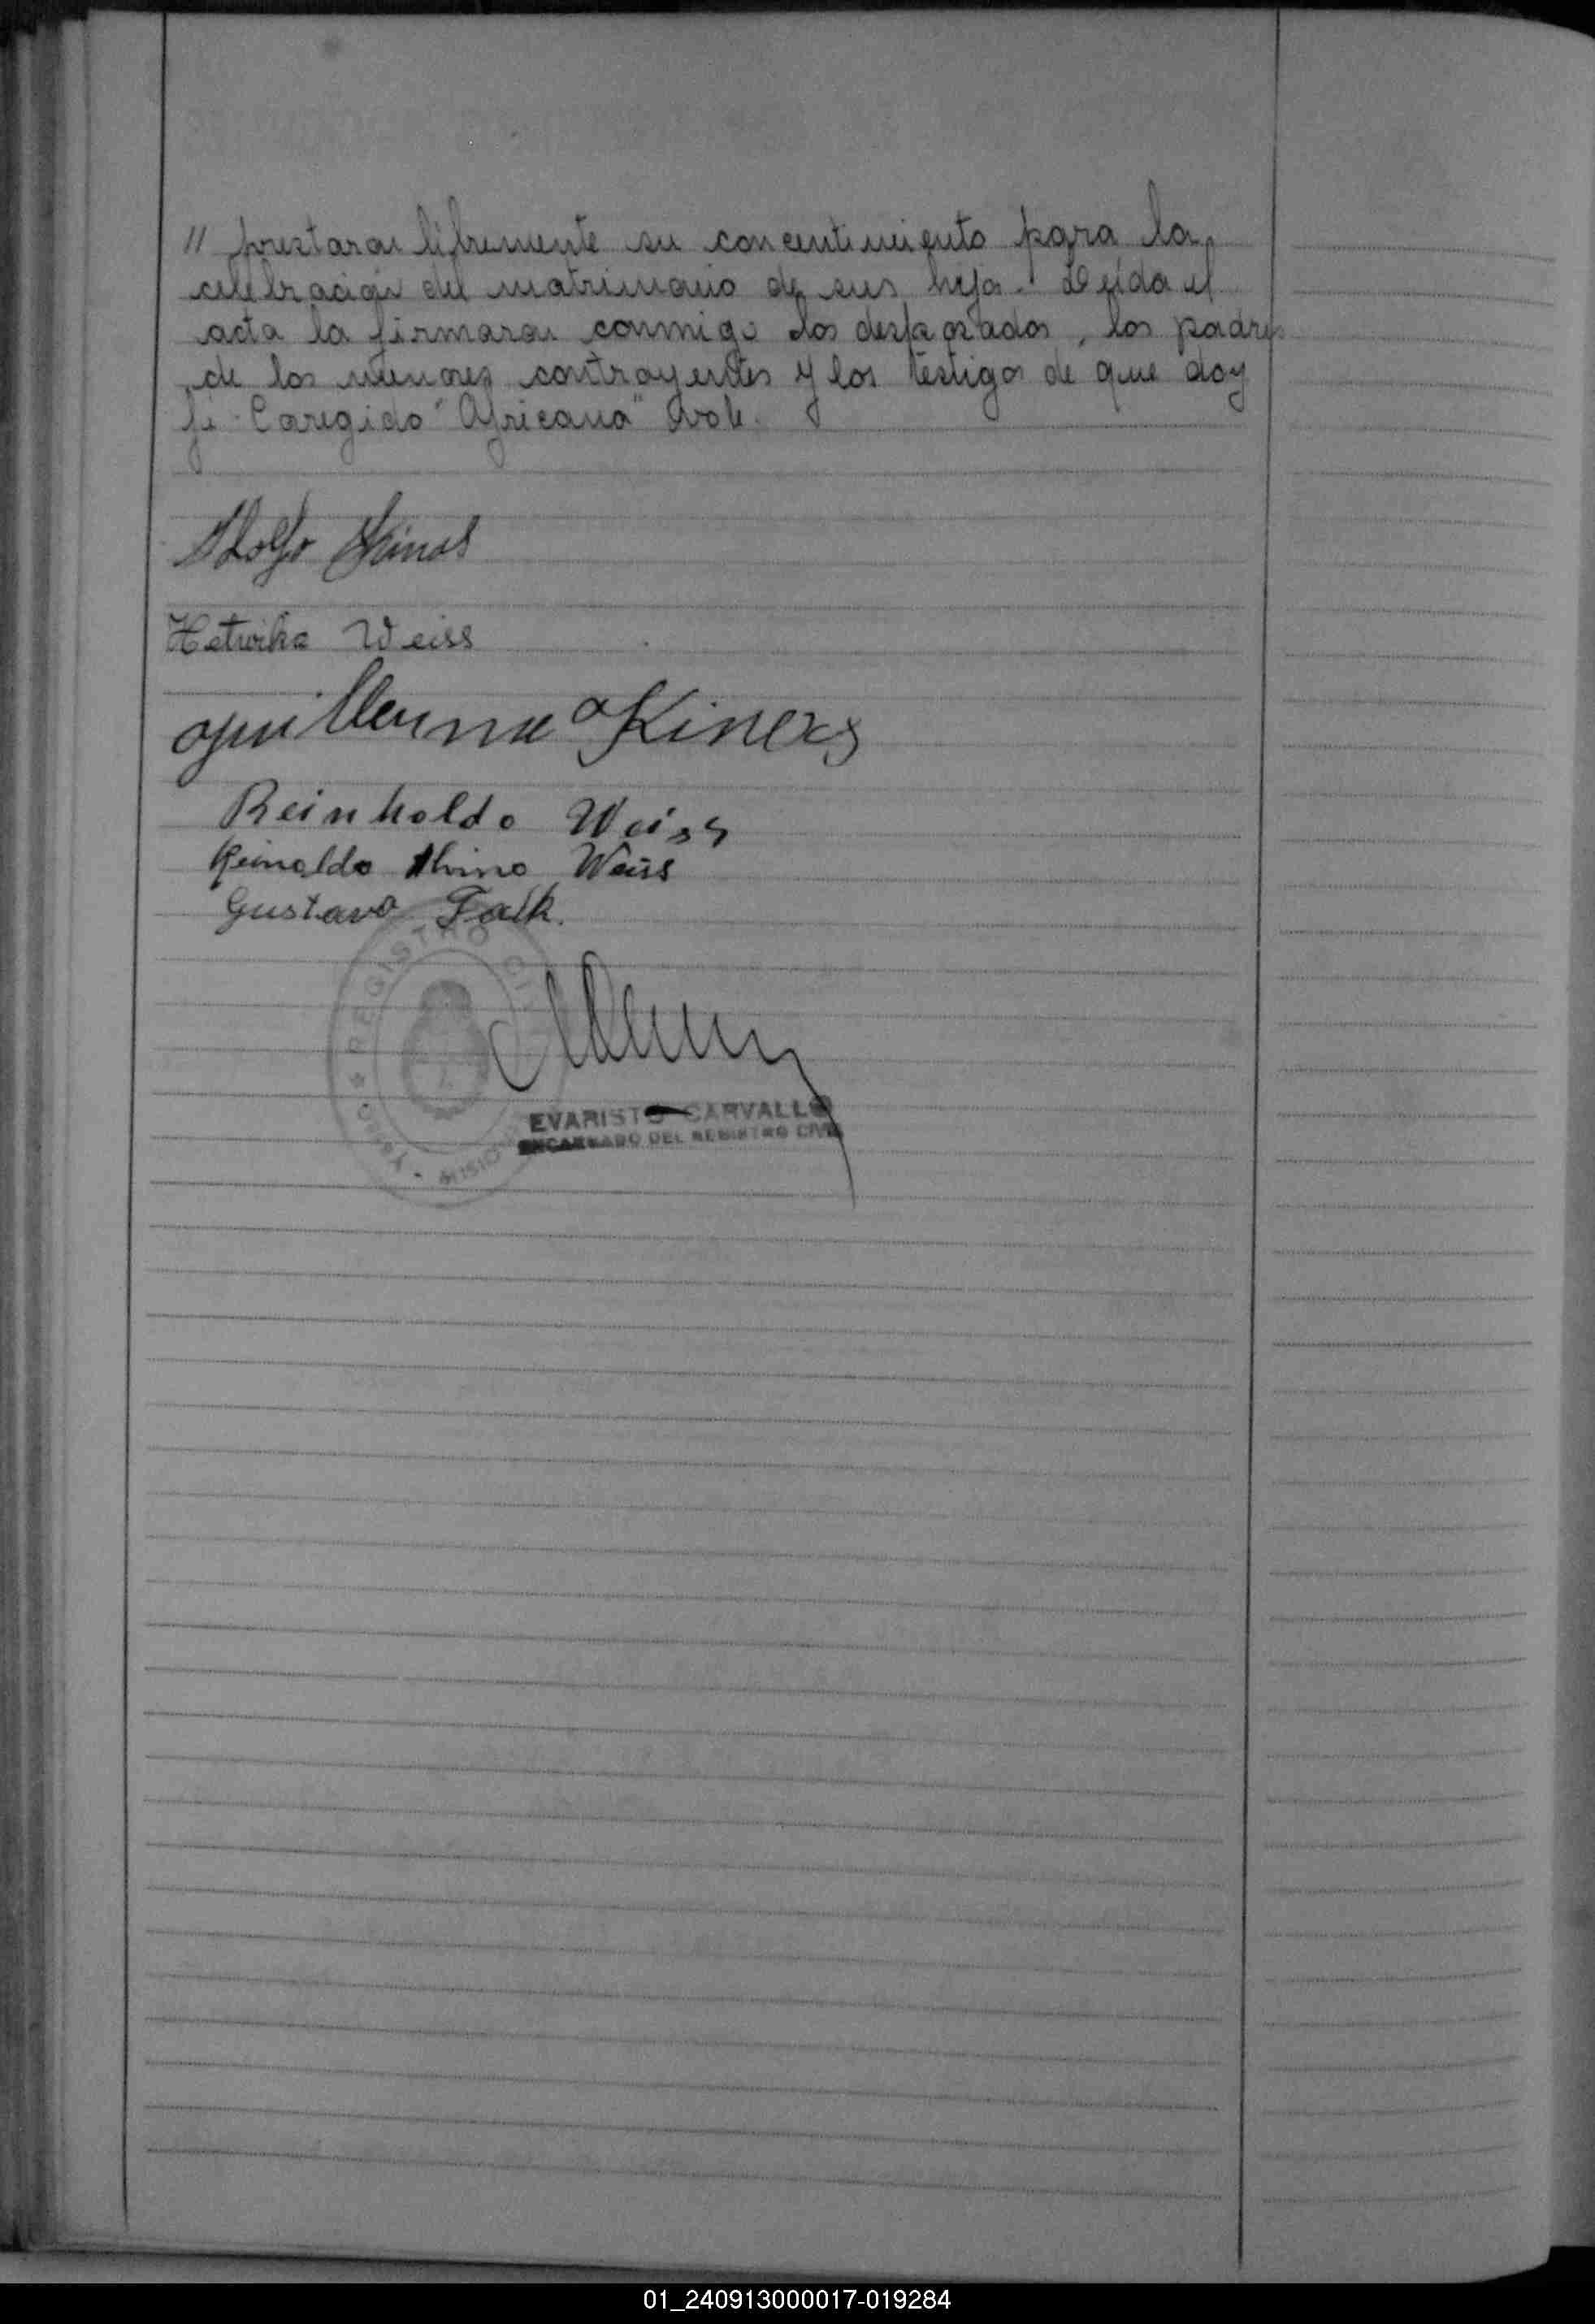 // prestaron libremente su concentimiento para la
celebración del matrimonio de sus hijos. Leída el
acta la firmaron conmigo los desposados, los padres
de los menores contrayentes y los testigos de que doy
fe. Coregido "Africana" Vale.
Adolfo Kinas
Hetwika Weiss
Guillermo Kinas
Reinholdo Weiss
Reinoldo Weiss
Gustavo Falk.
REGISTRO CIVIL
MISIONES
EVARISTO CARVALLO
ENCARGADO DEL REGISTRO CIVIL
01_240913000017-019284